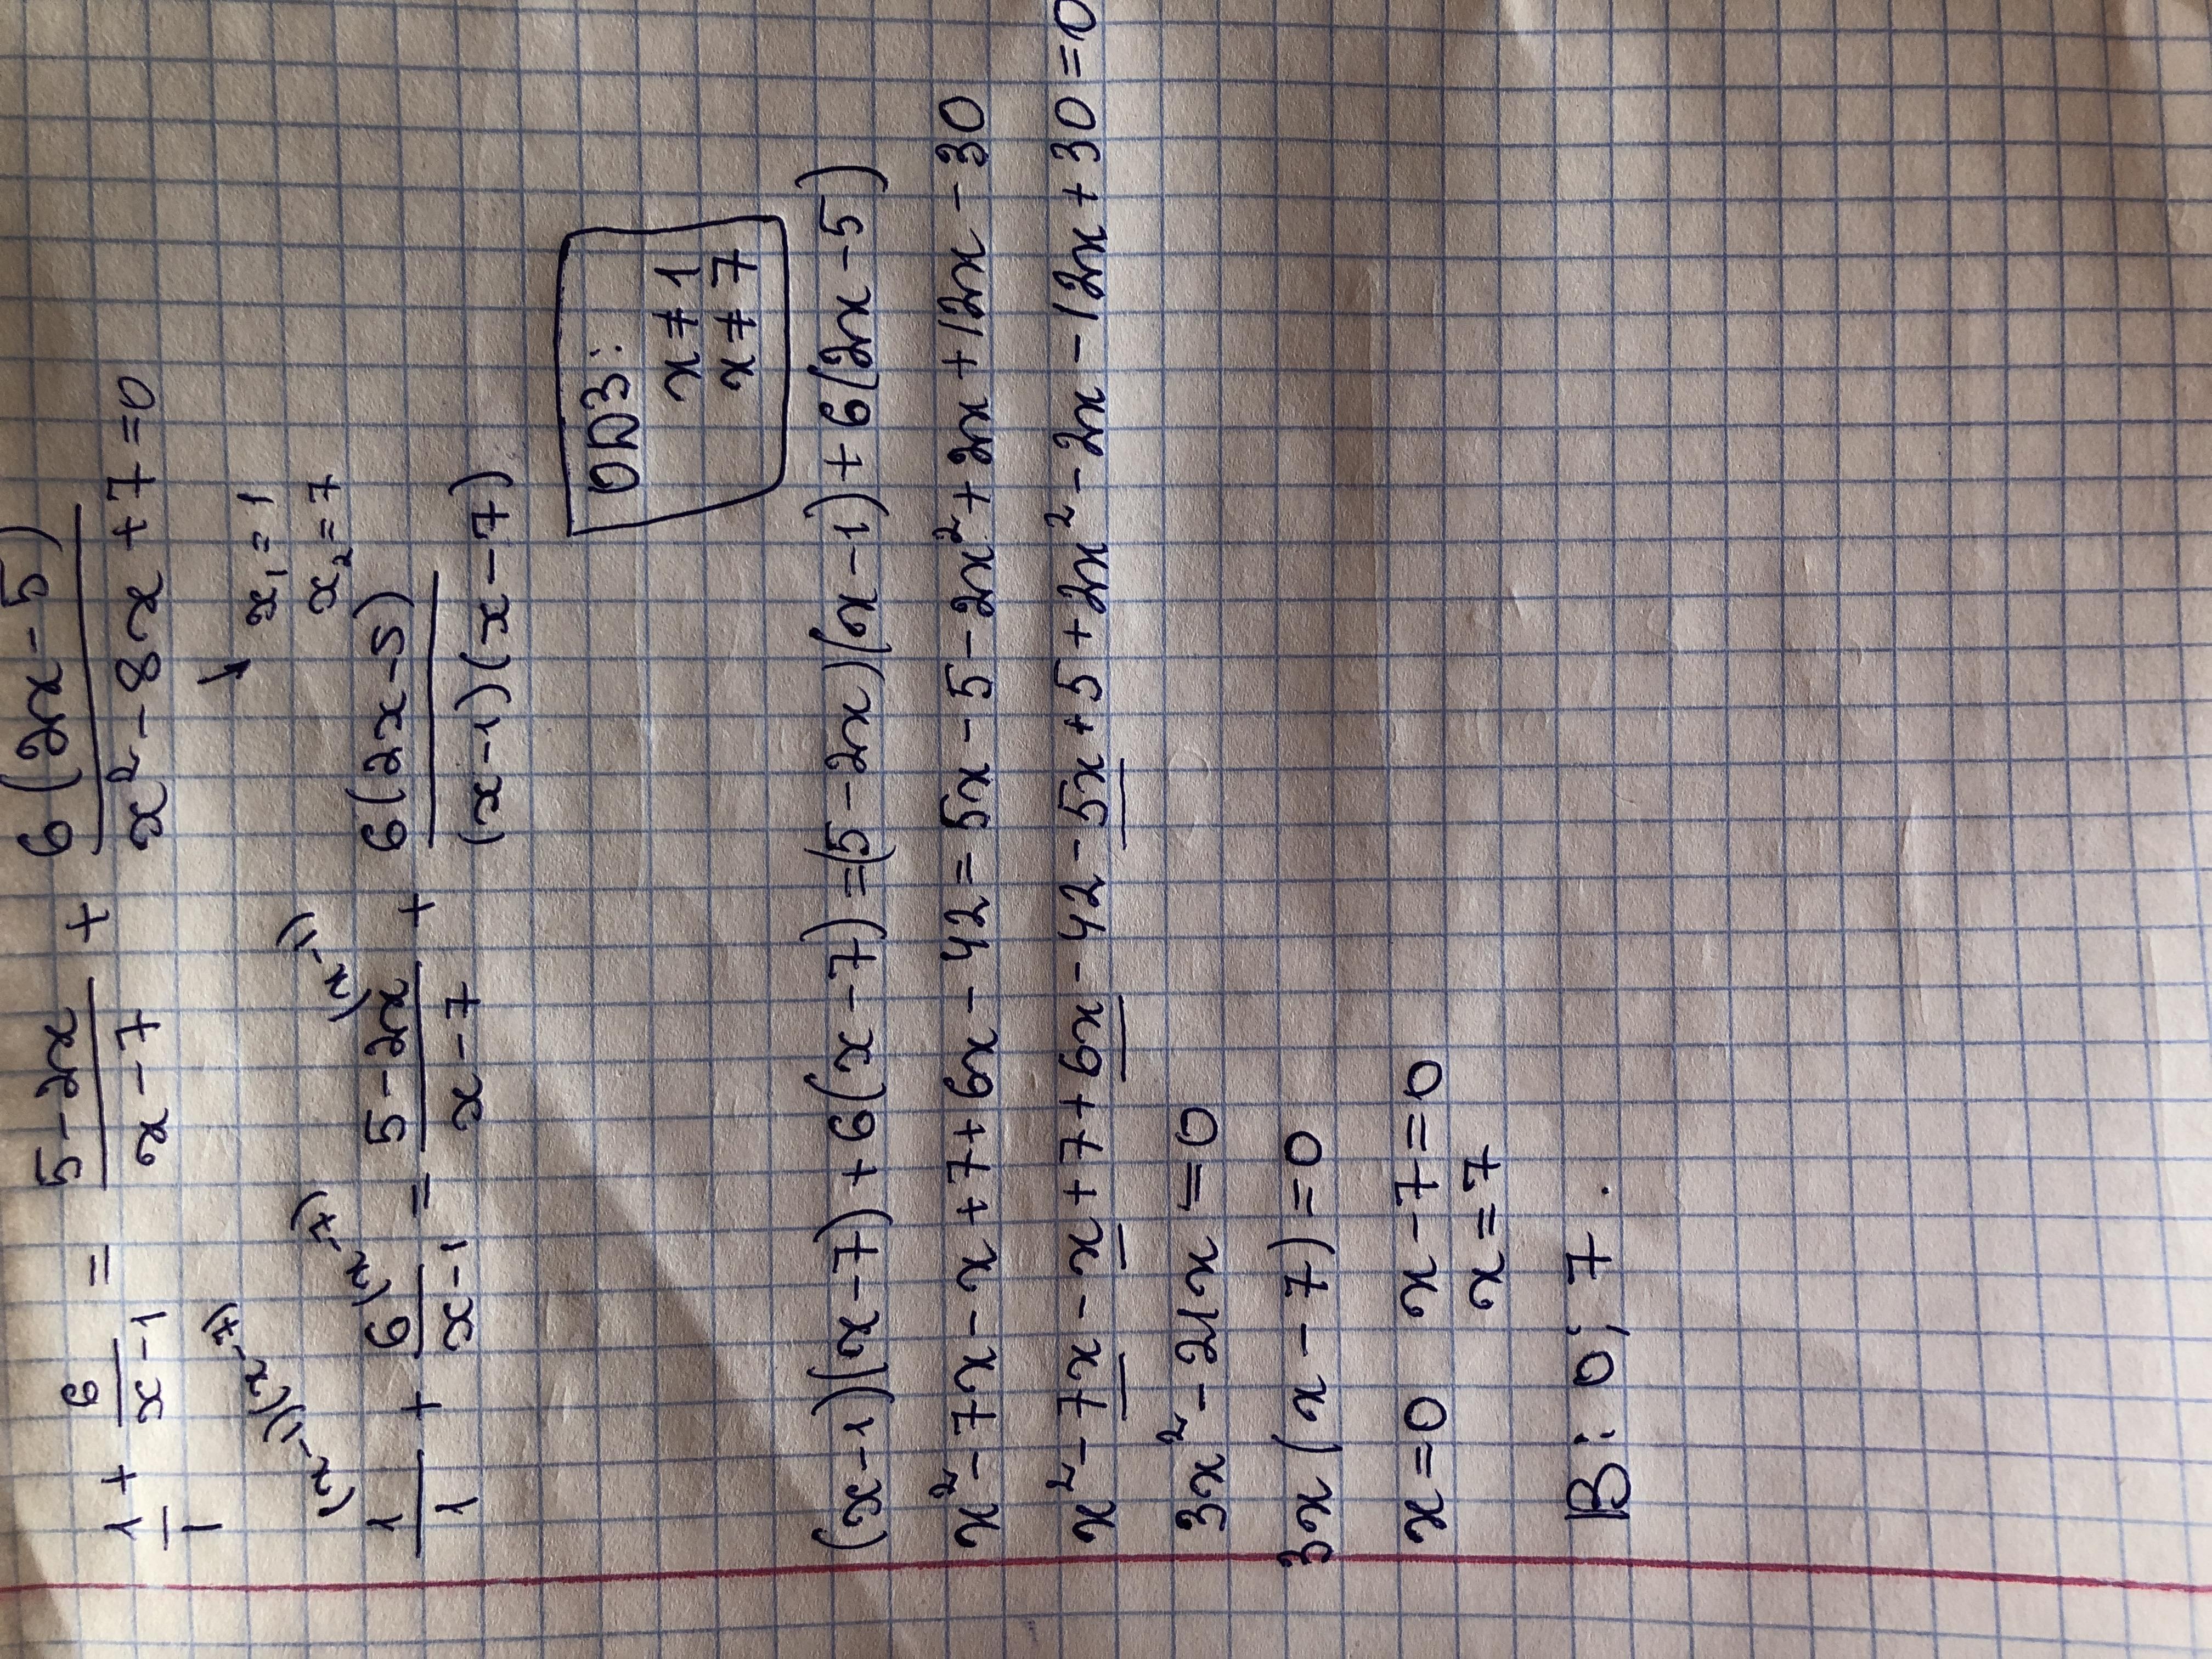 1/1 + 6/(x-1) = (5-2x)/(x-7) + 6(2x-5)/(x²-8x+7=0)
x₁=1
x₂=7
1/1 (x-1)(x-7) + 6/(x-1) (x-7) = (5-2x)/(x-7) (x-1) + 6(2x-5)/((x-1)(x-7))
ОДЗ:
x≠1
x≠7
(x-1)(x-7)+6(x-7)=(5-2x)(x-1)+6(2x-5)
x²-7x-x+7+6x-42=5x-5-2x²+2x+12x-30
x²-7x-x+7+6x-42-5x+5+2x²-2x-12x+30=0
3x²-21x=0
3x(x-7)=0
x=0 x-7=0
x=7
В: 0; 7.